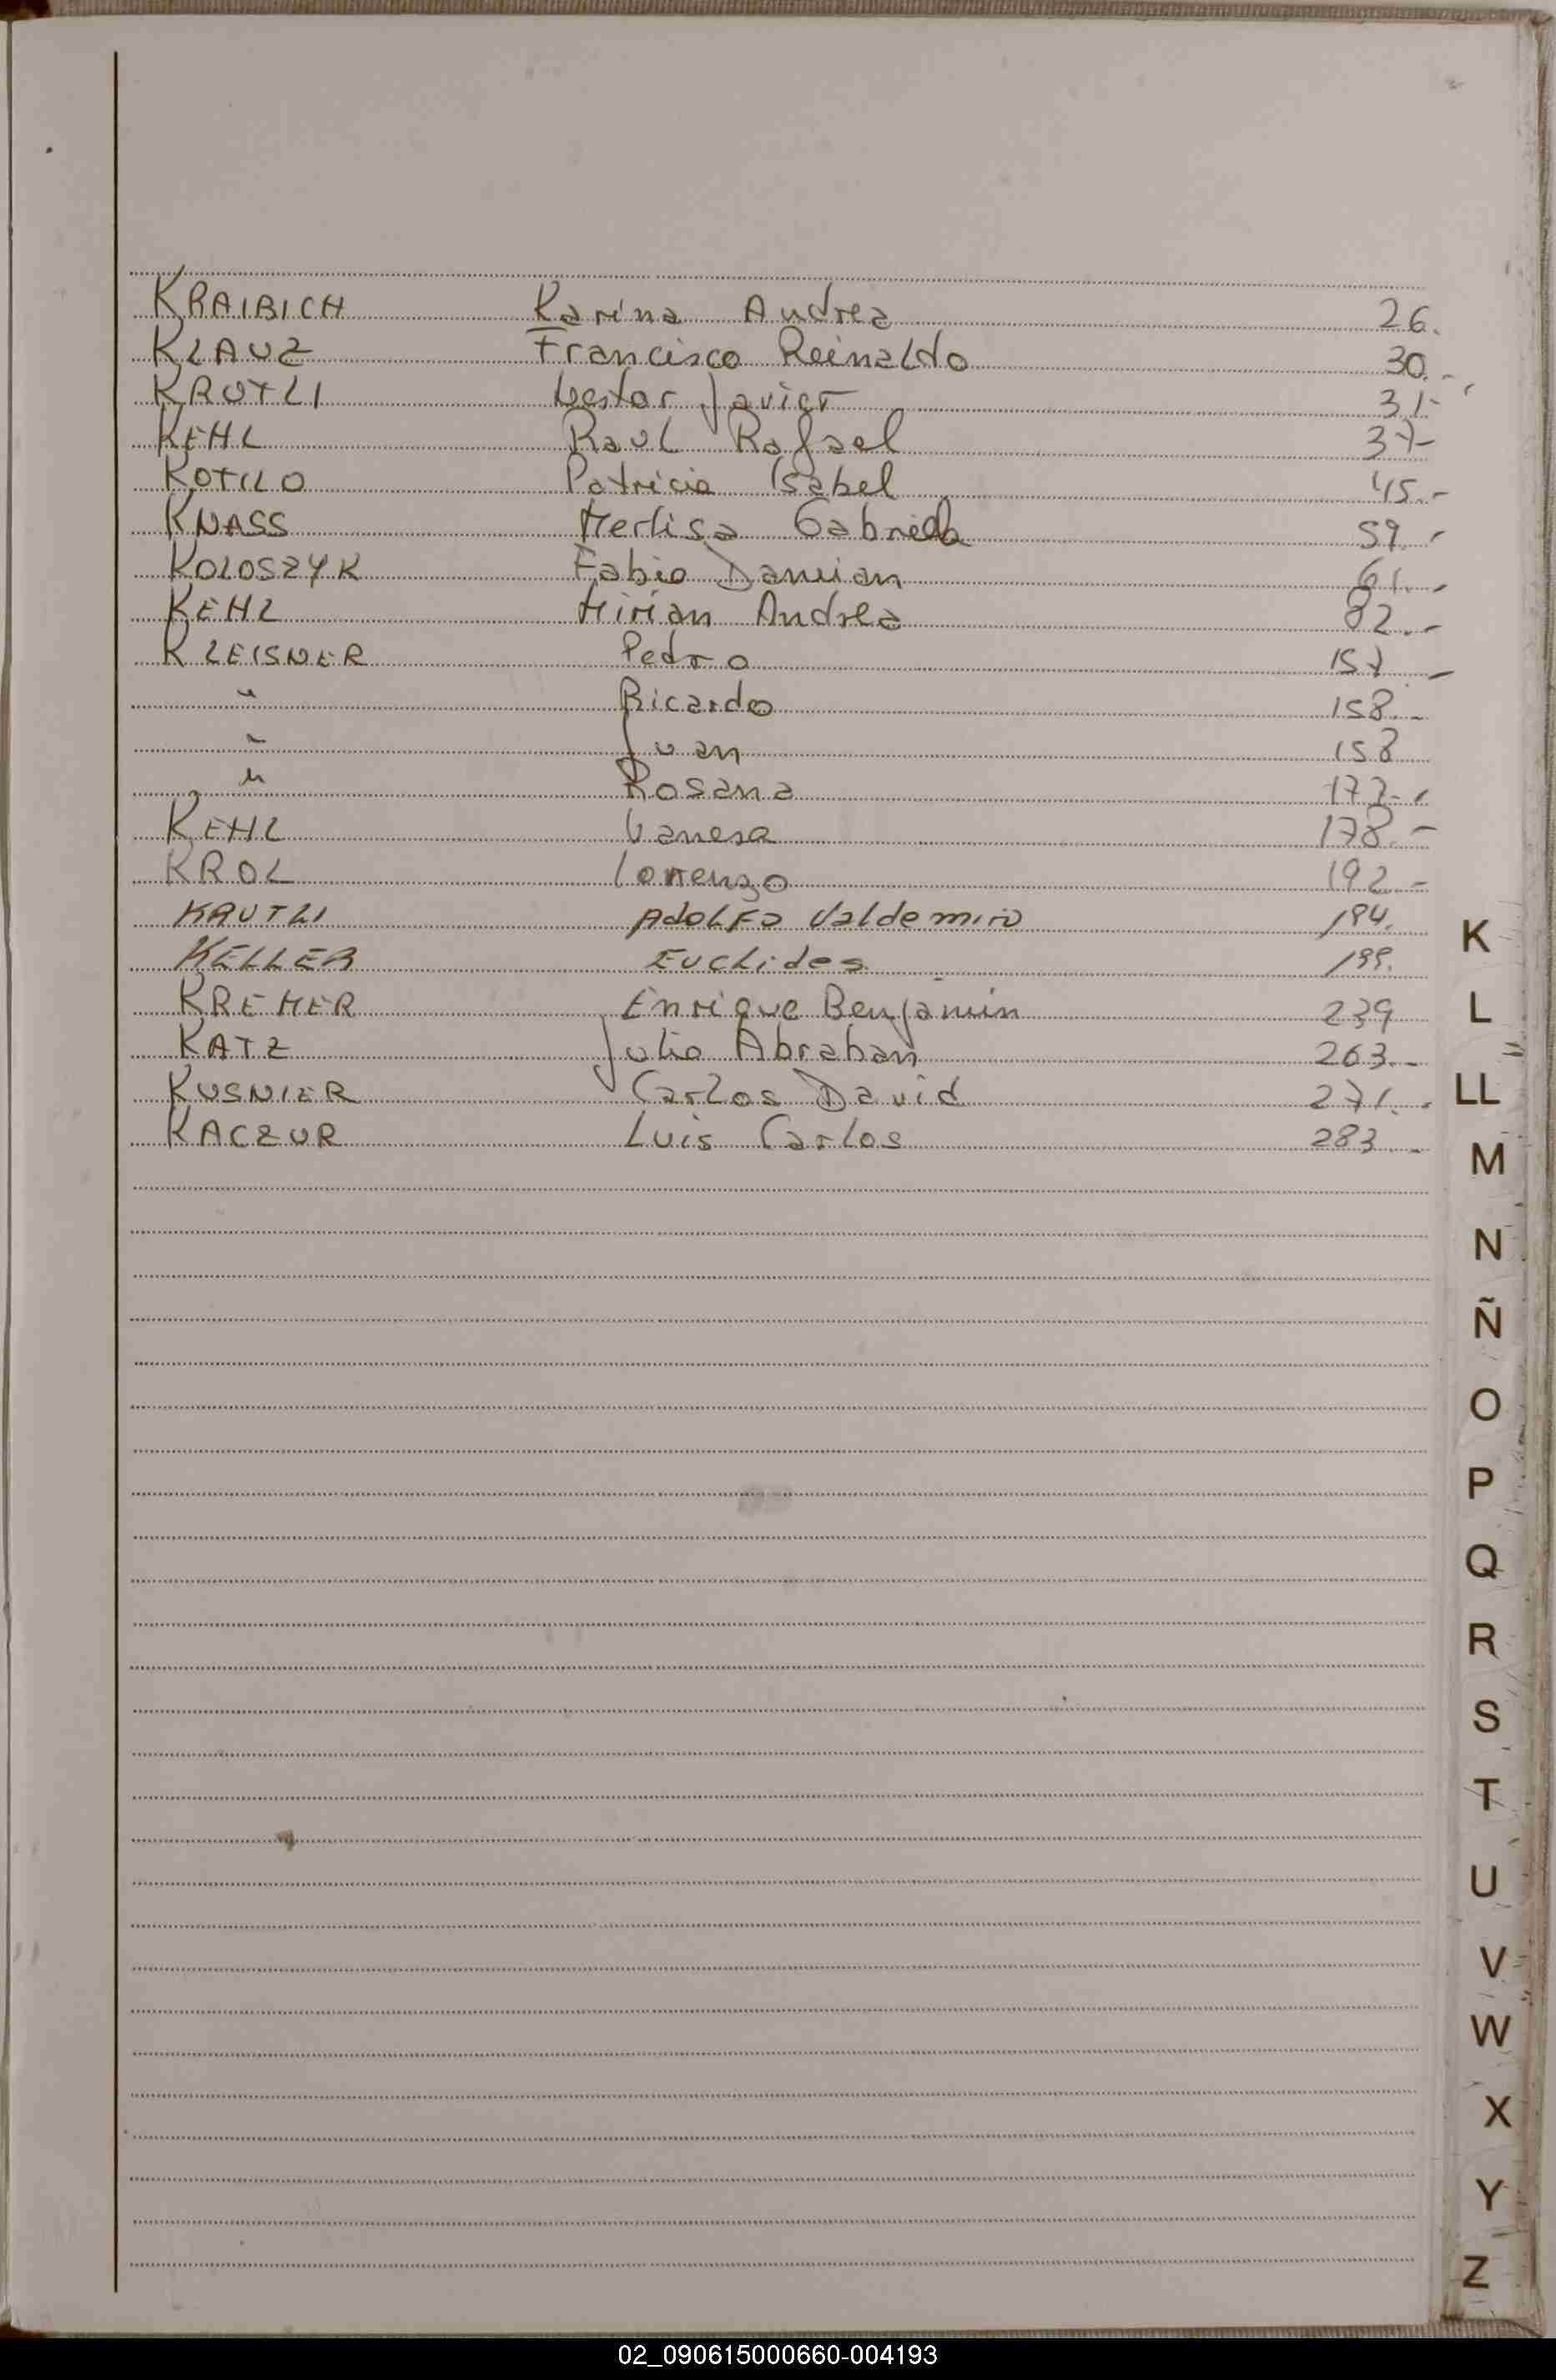 KRAIBICH Karina Andrea 26.
KLAUZ Francisco Reinaldo 30.-
KRUTLI Nestor Javier 31.-
KEHL Raul Rafael 37-
KOTILO Patricia Isabel 45.-
KNASS Merlisa Gabriela 59.-
KOLOSZYK Fabio Damian 61.-
KEHL Mirian Andrea 82.-
KLEISNER Pedro 157-
" Ricardo 158.-
" Juan 158
" Rosana 177-
KEHL Vanesa 178.-
KROL Lorenzo 192-
KRUTLI Adolfo Valdemiro 194.
KELLER Euclides 199.
KREMER Enrique Benjamin 239
KATZ Julio Abraham 263.-
KUSNIER Carlos David 271.
KACZUR Luis Carlos 283.-
K
L
LL
M
N
Ñ
O
P
Q
R
S
T
U
V
W
X
Y
Z
02_090615000660-004193